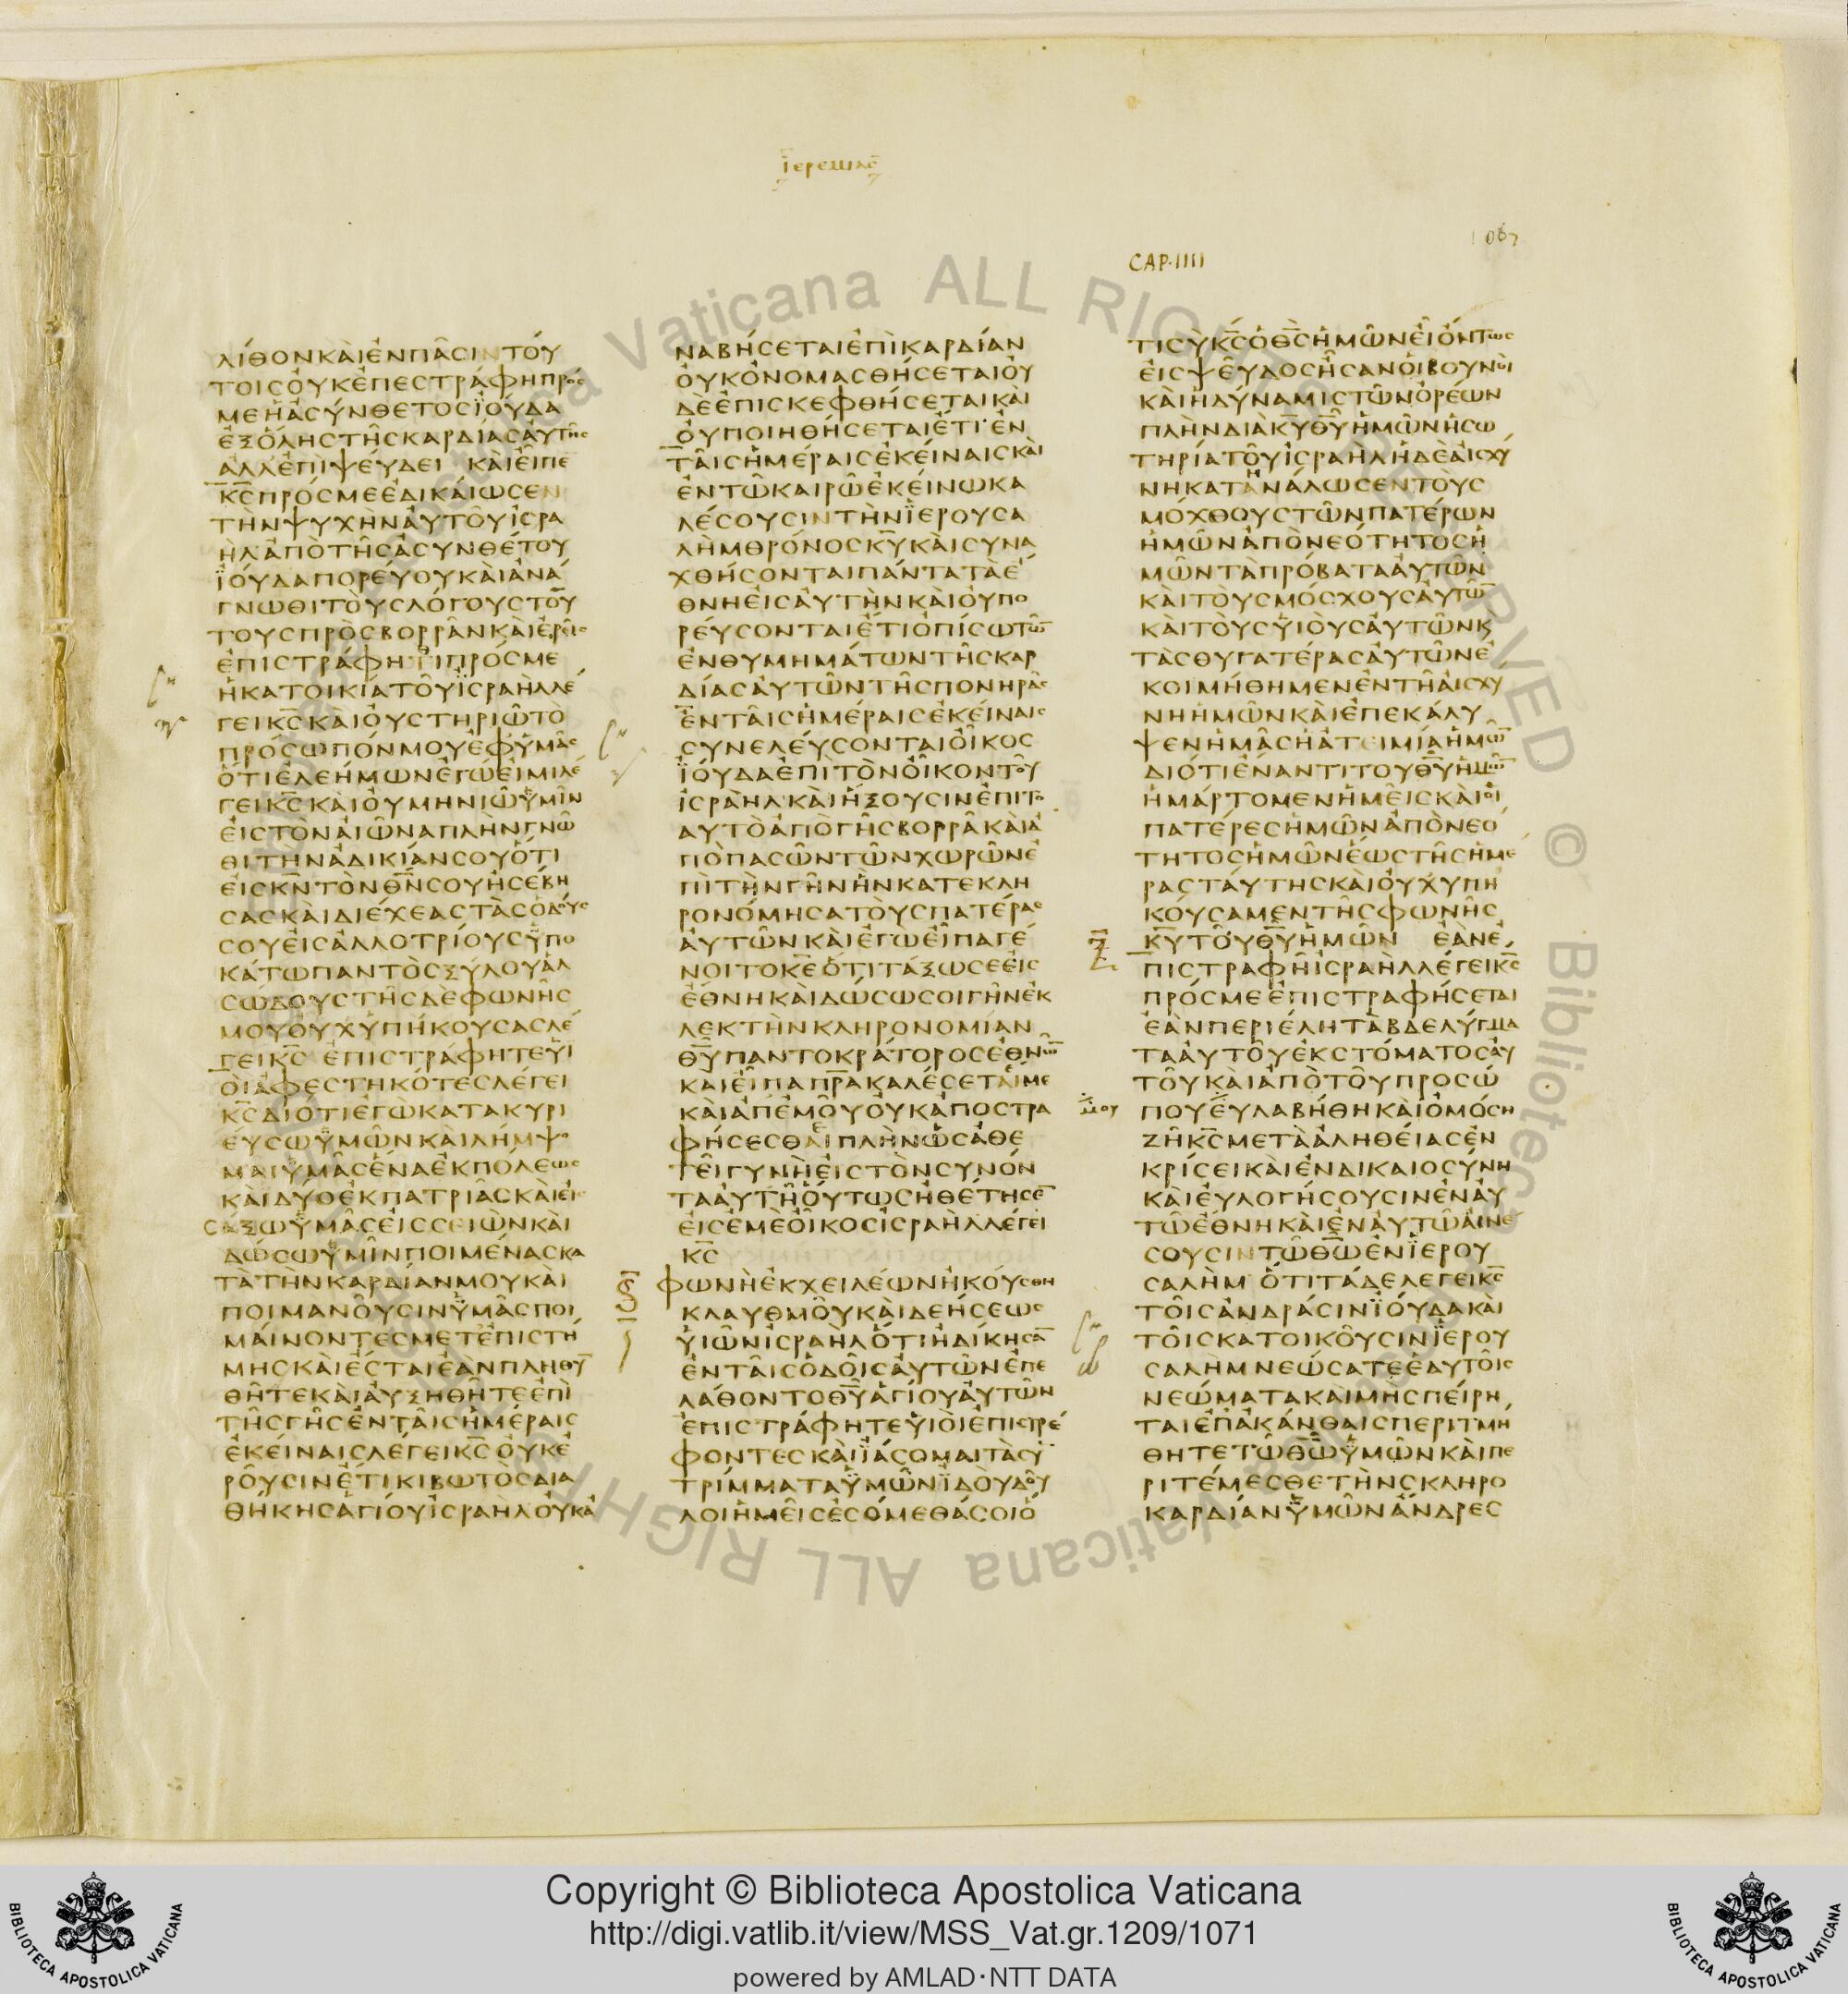 ϊερεμιας
1067
CAP·IIII
λίθονκαὶἐνπᾶσιντού
τοιςοὐκἐπεστράφηπρός
μεἡἀσύνθετοςϊούδα
ἐξὅληςτῆςκαρδίαςαὐτῆς
ἀλλἐπὶψεύδει καὶεἶπε
κ̅ς̅πρόςμεἐδικαίωσεν
τὴνψυχὴναὐτοῦἰσρα
ὴλἀπὸτῆςἀσυνθέτου
ϊούδαπορεύουκαὶἀνά
γνωθιτοὺςλόγουςτού
τουςπρὸςβορρᾶνκαὶἐρεῖς
ἐπιστράφητιπρόςμε
ἡκατοικίατοῦϊσραὴλλέ
γεικ̅ς̅καὶοὐστηριῶτὸ
πρόσωπόνμουἐφὑμᾶς
ὅτιἐλεήμωνἐγώεἰμιλέ
γεικ̅ς̅καὶοὐμηνιῶϋμῖν
εἰςτὸναἰῶναπλὴνγνῶ
θιτὴνἀδικίανσουὅτι
εἰςκ̅ν̅τὸνθ̅ν̅σουἠσέβη
σαςκαὶδιέχεαςτὰςὁδούς
σουεἰςἀλλοτρίουςϋπο
κάτωπαντὸςξύλουἀλ
σώδουςτῆςδὲφωνῆς
μουοὐχϋπήκουσαςλέ
γεικ̅ς̅ ἐπιστράφητεϋἱ
οὶἀφεστηκότεςλέγει
κ̅ς̅διότιἐγὼκατακυρι
εύσωϋμῶνκαὶλήμψο
μαιϋμᾶςἕναἐκπόλεως
καὶδύοἐκπατριᾶςκαὶεἰσ
άξωϋμᾶςεἰςσειὼνκαὶ
δώσωϋμῖνποιμέναςκα
τὰτὴνκαρδίανμουκαὶ
ποιμανοῦσινϋμᾶςποι
μαίνοντεςμετἐπιστή
μηςκαὶἔσταιἐὰνπληθυ̅
θῆτεκαὶαὐξηθῆτεἐπὶ
τῆςγῆςἐνταῖςἡμέραις
ἐκείναιςλέγεικ̅ς̅οὐκἐ
ροῦσινἔτικιβωτὸςδια
θήκηςἁγίουἰσραηλοὐκἀ
ναβήσεταιἐπὶκαρδίαν
οὐκὀνομασθήσεταιοὐ
δὲἐπισκεφθήσεταικαὶ
οὐποιηθήσεταιἔτι·ἐν
ταῖςἡμέραιςἐκείναιςκαὶ
ἐντῶκαιρῶἐκείνωκα
λέσουσιντὴνϊερουσα
λὴμθρόνοςκ̅υ̅καὶσυνα
χθήσονταιπάντατὰἔ
θνηεἰςαὐτὴνκαὶοὐπο
ρεύσονταιἔτιὀπίσωτῶ̅
ἐνθυμημάτωντῆςκαρ
δίαςαὐτῶντῆςπονηρᾶς
ἐνταῖςἡμέραιςἐκείναις
συνελεύσονταιοἶκος
ϊούδαἐπὶτὸνοἶκοντοῦ
ἰσραὴλ·καὶἥξουσινἐπιτο
αυτὸἀπὸγῆςβορρᾶκαὶἀ
πὸπασῶντῶνχωρῶνἐ
πὶτὴνγῆνἣνκατεκλη
ρονόμησατοὺςπατέρας
αὐτῶνκαὶἐγὼεἶπαγέ
νοιτοκ̅ε̅ὅτιτάξωσεεἰς
ἔθνηκαὶδώσωσοιγῆνἐκ
λεκτὴνκληρονομίαν
θ̅υ̅παντοκράτοροςἐθνῶ̅
καιεἶπαπ̅ρ̅ακαλέσετάιμε
καὶἀπἐμοῦοὐκἀποστρα
φήσεσθαιπλὴνὡςἀθε
τεῖγυνὴεἰςτὸνσυνόν
τααὐτῆοὕτωςἠθέτησε̅
εἰςἐμὲοἶκοςἰσραὴλλέγει
κ̅ς̅
φωνὴἐκχειλέωνἠκούσθη
κλαυθμοῦκαὶδεήσεως
ϋἱῶνἰσραὴλὅτιἠδίκησα̅
ἐνταῖςὁδοῖςαὐτῶνἐπε
λάθοντοθ̅υ̅ἁγίουαὐτῶν
ἐπιστράφητεϋἱοὶἐπιστρέ
φοντεςκαὶϊάσομαιτὰσυ̅
τρίμματαϋμῶνϊδοὺδοῦ
λοιἡμεῖςἐσόμεθάσοιὅ
τισὺκ̅ς̅ὁθ̅ς̅ἡμῶνεἶὄντως
εἰςψεῦδοςἦσανοἱβουνοὶ
καὶἡδύναμιςτῶνὀρέων
πλὴνδιὰκ̅υ̅θ̅υ̅ἡμῶνἡσω
τηρίατοῦἰσραὴλἡδὲαἰσχύ
νηκατανάλωσεντοὺς
μόχθουςτῶνπατέρων
ἡμῶνἀπὸνεότητοςἡ
μῶντὰπρόβατααὐτῶν
καὶτοὺςμόσχουςαὐτῶ̅
καὶτοὺςϋἱοὺςαὐτῶνκ̀
τὰςθυγατέραςαὐτῶνἐ
κοιμήθημενἐντῆαἰσχύ
νηἡμῶνκαὶἐπεκάλυ
ψενἡμᾶςἡἀτειμίαἡμῶ̅
διότιἐναντιτουθ̅υ̅ἡμῶ̅
ἡμάρτομενἡμεῖςκαὶοἱ
πατέρεςἡμῶνἀπὸνεό
τητοςἡμῶνἕωςτῆςἡμέ
ραςταύτηςκαὶοὐχϋπη
κούσαμεντῆςφωνῆς
κ̅υ̅τοῦθ̅υ̅ἡμῶν ἐὰνἐ
πιστραφῆἰσραὴλλέγεικ̅ς̅
πρόςμεἐπιστραφήσεται
ἐὰνπεριέλητὰβδελύγμα
τααὐτοῦἐκστόματοςαὐ
τοῦκαὶἀπὸτοῦπροσώ
μου
πουεὐλαβήθηκαὶὀμόση
ζῆκ̅ς̅μετὰἀληθείαςἐν
κρίσεικαὶἐνδικαιοσύνη
καὶεὐλογήσουσινἐναὐ
τῶἔθνηκαὶἐναὐτῶαἰνέ
σουσιντῶθ̅ω̅ἐνϊερου
σαλὴμ ὅτιτάδελεγεικ̅ς̅
τοῖςἀνδράσινϊούδακαὶ
τοῖςκατοικοῦσινϊερου
σαλὴμνεώσατεἑαυτοῖς
νεώματακαὶμὴσπείρη
ταιἐπἀκάνθαιςπεριτμη
θητετῶθ̅ω̅ϋμῶνκαὶπε
ριτέμεσθετὴνσκληρο
καρδίανϋμῶνἄνδρες
Copyright © Biblioteca Apostolica Vaticana
http://digi.vatlib.it/view/MSS_Vat.gr.1209/1071
powered by AMLAD·NTT DATA
BIBLIOTECA APOSTOLICA VATICANA
BIBLIOTECA APOSTOLICA VATICANA